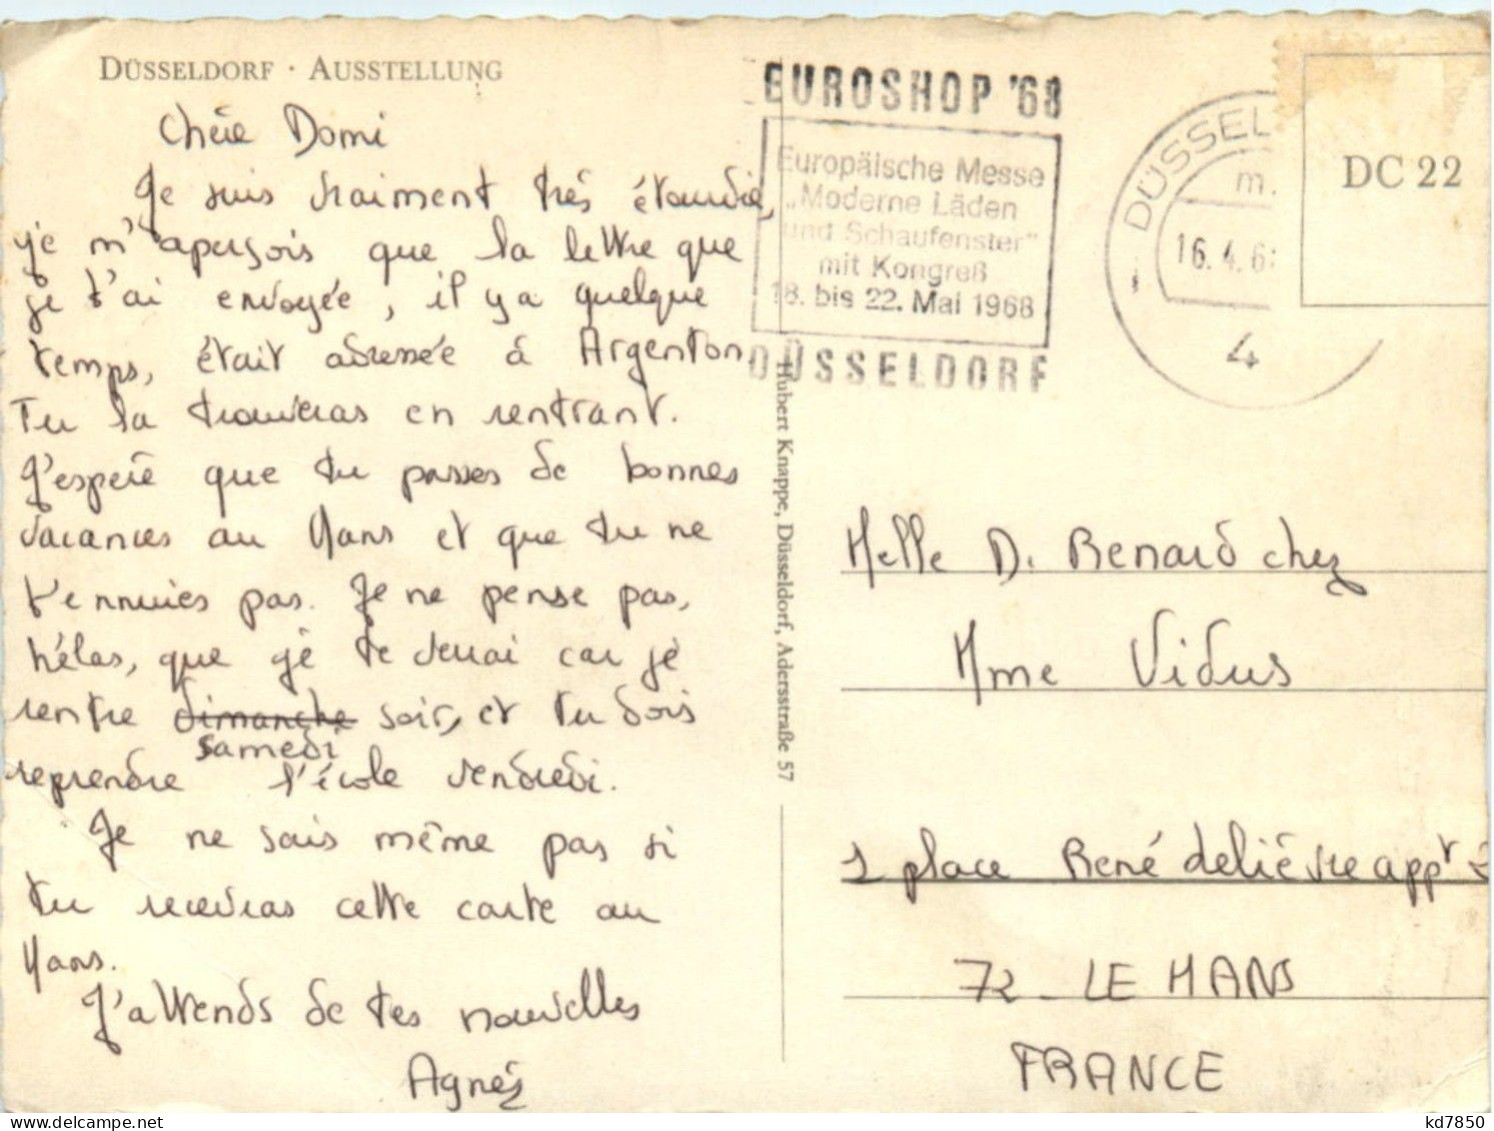 DÜSSELDORF · AUSSTELLUNG
Chère Domi
Je suis vraiment très étourdie,
je m'aperçois que la lettre que
je t'ai envoyée, il y a quelque
temps, était adressée à Argenton
Tu la trouveras en rentrant.
J'espère que tu passes de bonnes
vacances au Mans et que tu ne
t'ennuies pas. Je ne pense pas,
hélas, que je te verrai car je
rentre dimanche soir, et tu dois
samedi
reprendre l'école vendredi.
Je ne sais même pas si
tu recevras cette carte au
Mans.
J'attends de tes nouvelles
Agnés
Hubert Knappe, Düsseldorf, Adersstraße 57
EUROSHOP '68
Europäische Messe
„Moderne Läden
und Schaufenster"
mit Kongreß
18. bis 22. Mai 1968
DÜSSELDORF
DÜSSEL
m.
16.4.6
4
DC 22
Melle D. Renard chez
Mme Vidus
1 place René delièvre appt
72 - LE MANS
FRANCE
kd7850